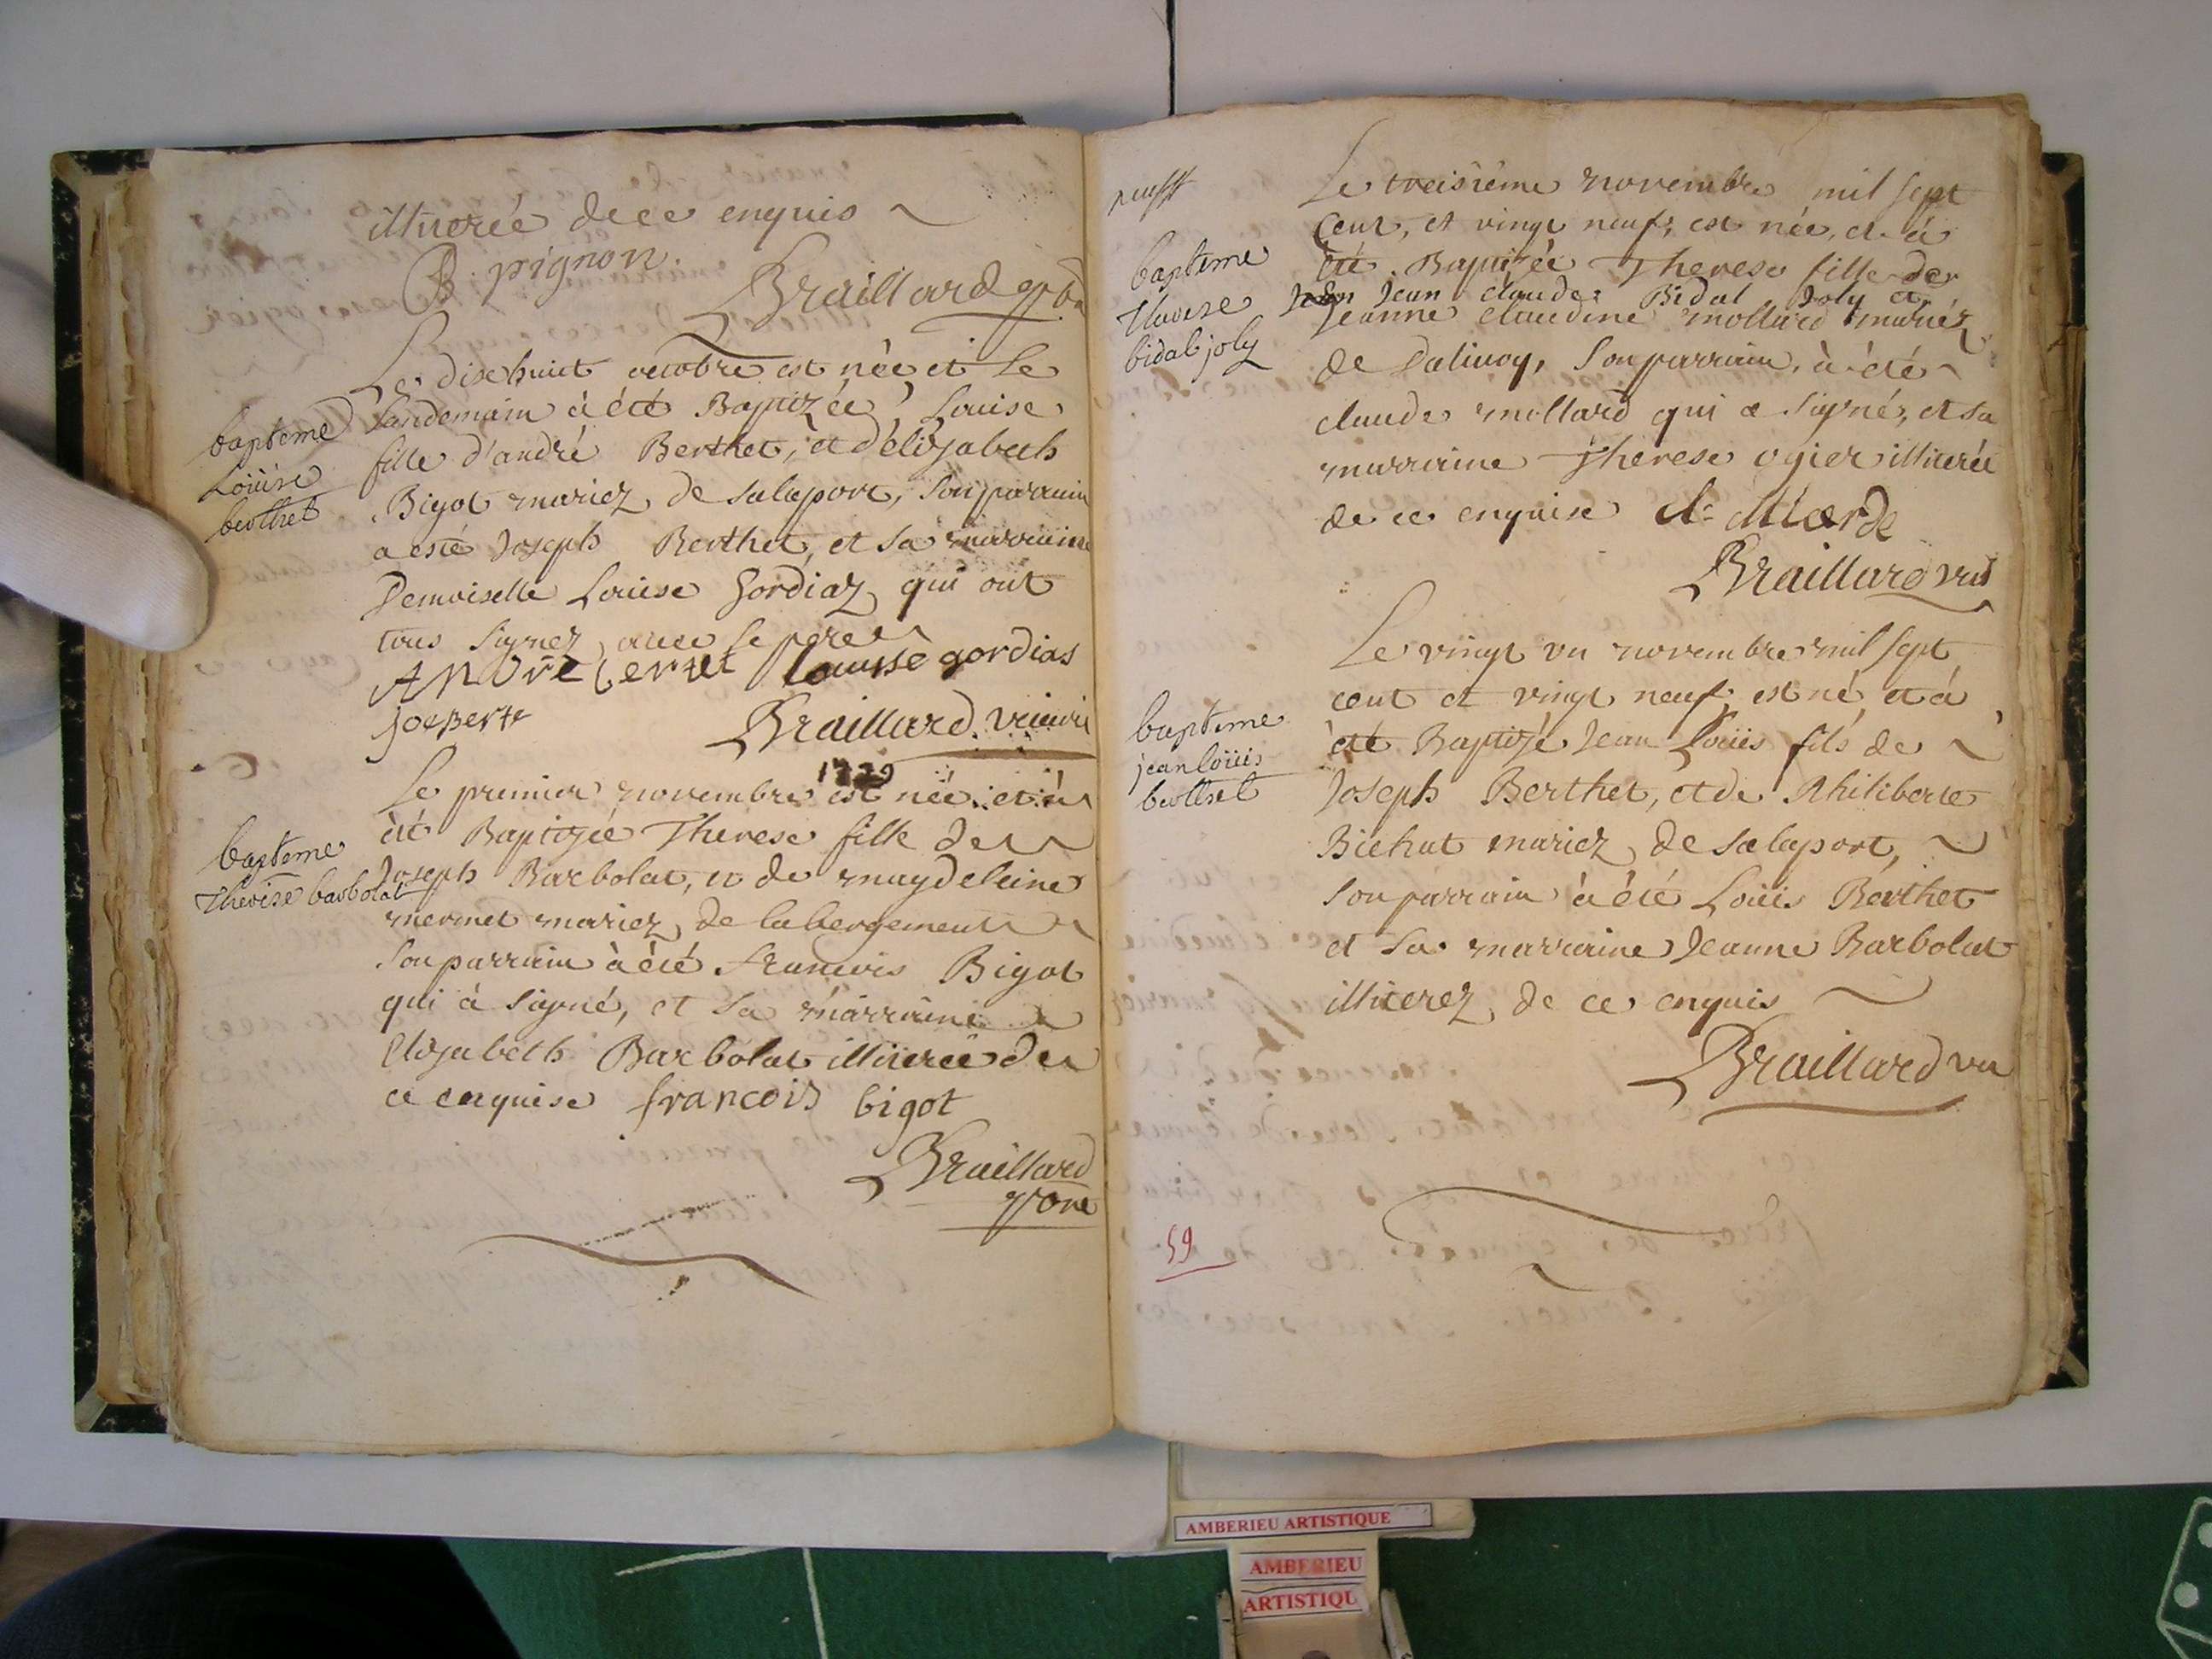 illiterée de ce enquis
B. pignon.
Braillard
Le dixehuict octobre est née et le
landemain à été Baptizée, Louise
fille d'andré Berthet, et d'élizabeth
Bigot mariez de salaport, son parrain
a esté Joseph Berthet, et sa marraine
Demoiselle Louise Gordiaz qui ont
tous signez avec le pere
bapteme
Loüise
berthet
ANDre berthet louisse gordias
joe Berte
Braillard. vicaire
1729
Le premier novembre est née et à
été Baptizée Therese fille de
Joseph Barbolat, et de maydeleine
mermet mariez de labergement
son parrain à été francois Bigot
qui à signé, et sa marraine
Elizabeth Barbolat illiterée de
ce enquise francois bigot
bapteme
Therese barbolat
Braillard
Le troisieme novembre mil sept
cent, et vingt neuf, est née, et à
été Baptizée Therese fille de
Jean claude Bidal Joly et
Jeanne claudine mollard mariez
de Dalivoy, son parrain, à été
claude mollard qui a signé, et sa
marraine Therese ogier illiterée
de ce enquise
bapteme
Therese
bidal joly
Braillard
Le vingt un novembre mil sept
cent et vingt neuf est né et à
été Baptizé Jean Loüis fils de
Joseph Berthet, et de Philiberte
Bichat mariez de salaport,
son parrain à été Loüis Berthet
et sa marraine Jeanne Barbolat
illiterez de ce enquis
bapteme
jean loüis
berthet
Braillard
59
AMBERIEU ARTISTIQUE
AMBERIEU
ARTISTIQU